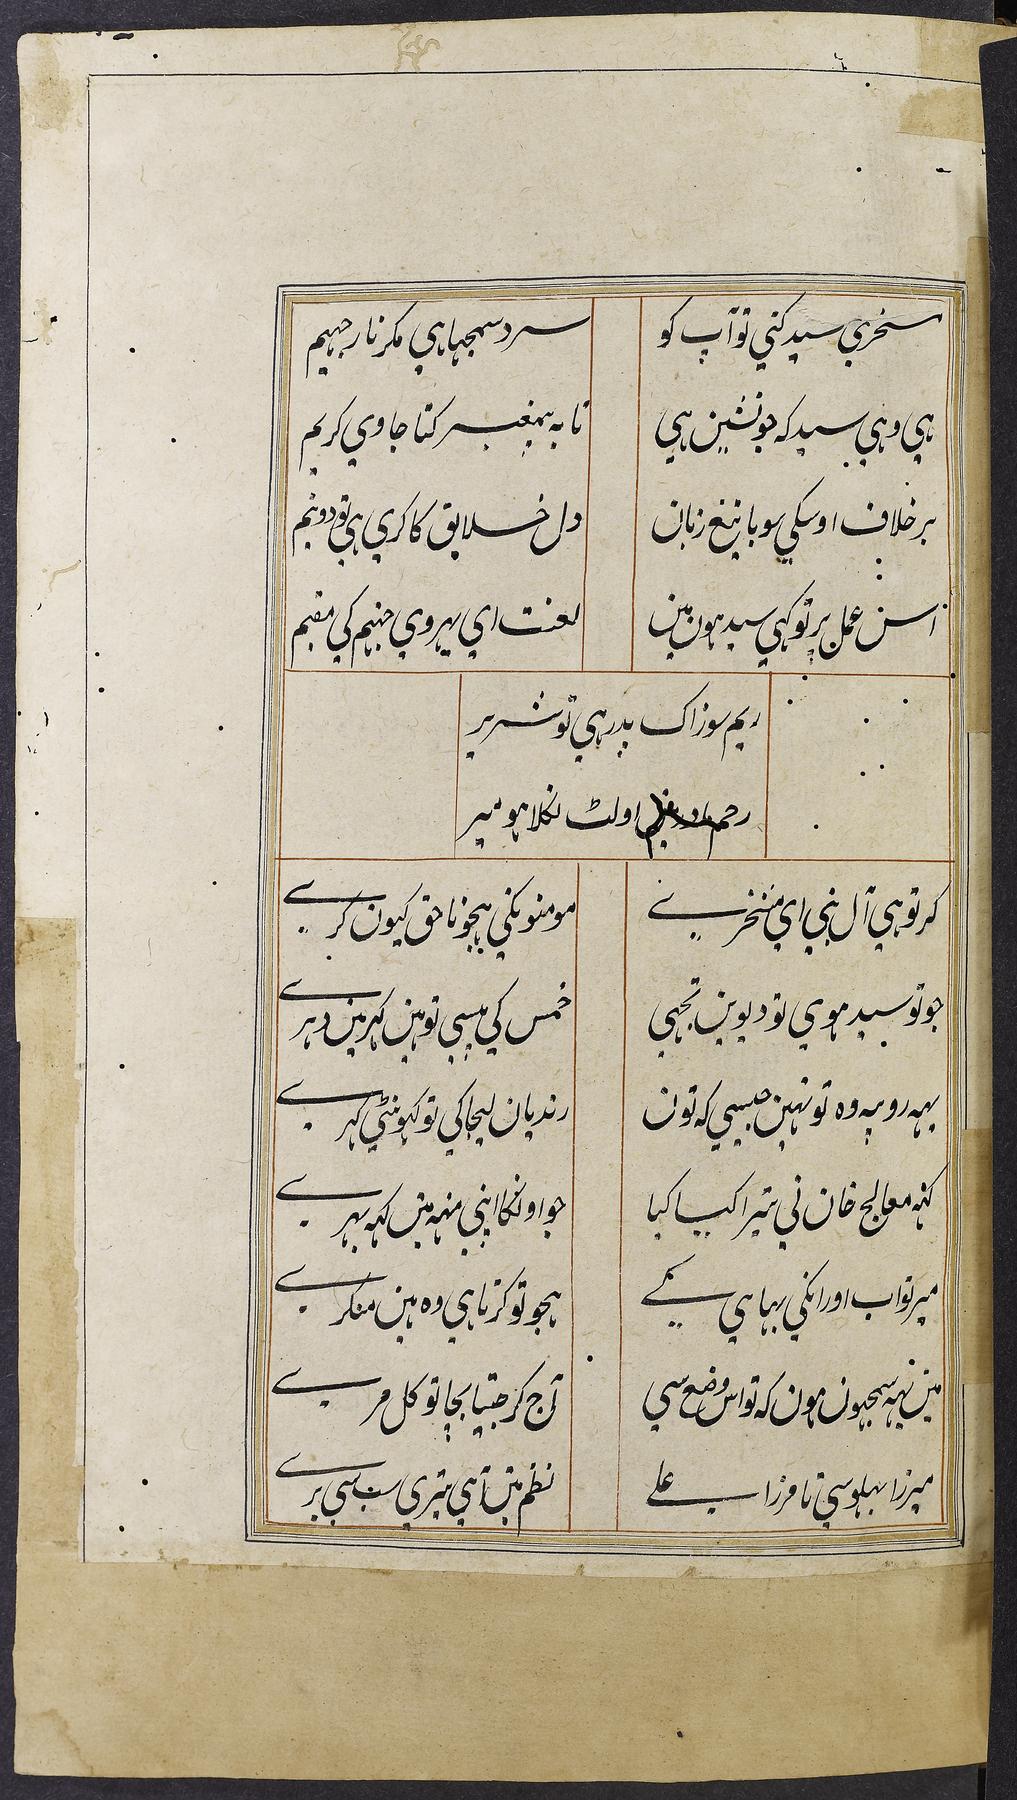 مسخری سید کنی تو آپ کو سرد سمجہا ہی مکر نار جہیم
ہی وہی سید کہ جو نشین ہی تا بہ پیغمبر کنا جاوی کریم
بر خلاف اوسکی سو با تیغ زبان دل خلایق کا کری ہی تو دو نیم
اس عمل پر تو کہی سید ہون مین لعنت ای پیروی جہنم کی مقیم
ریم سوزاک پدر ہی تو شریر
رحم اولٹ نکلا ہو میر
کر تو ہی آل نبی ای مسخری مومنونکی ہجو ناحق کیون کری
جو تو سید ہوی تو دیوین تجہی خمس کی پیسی تو ہین کہر مین دہری
یہہ روپیہ وہ تو نہین جیسی کہ تون رندیان لیجاکی تو کہونٹی کہری
کہہ معالج خان نی تیرا کیا کیا جو اونکا اپنی منہہ مین کہہ بہری
میر نواب اور انکی بہاہی کے ہجو تو کرتا ہی وہ ہین منکری
مین نہہ سمجہون ہون کہ تو اس وضع سی آج کر جیتا بچا تو کل مری
میرزا بہلو سی تا مرزا علے نظم مین آہی تیری سب سی بری